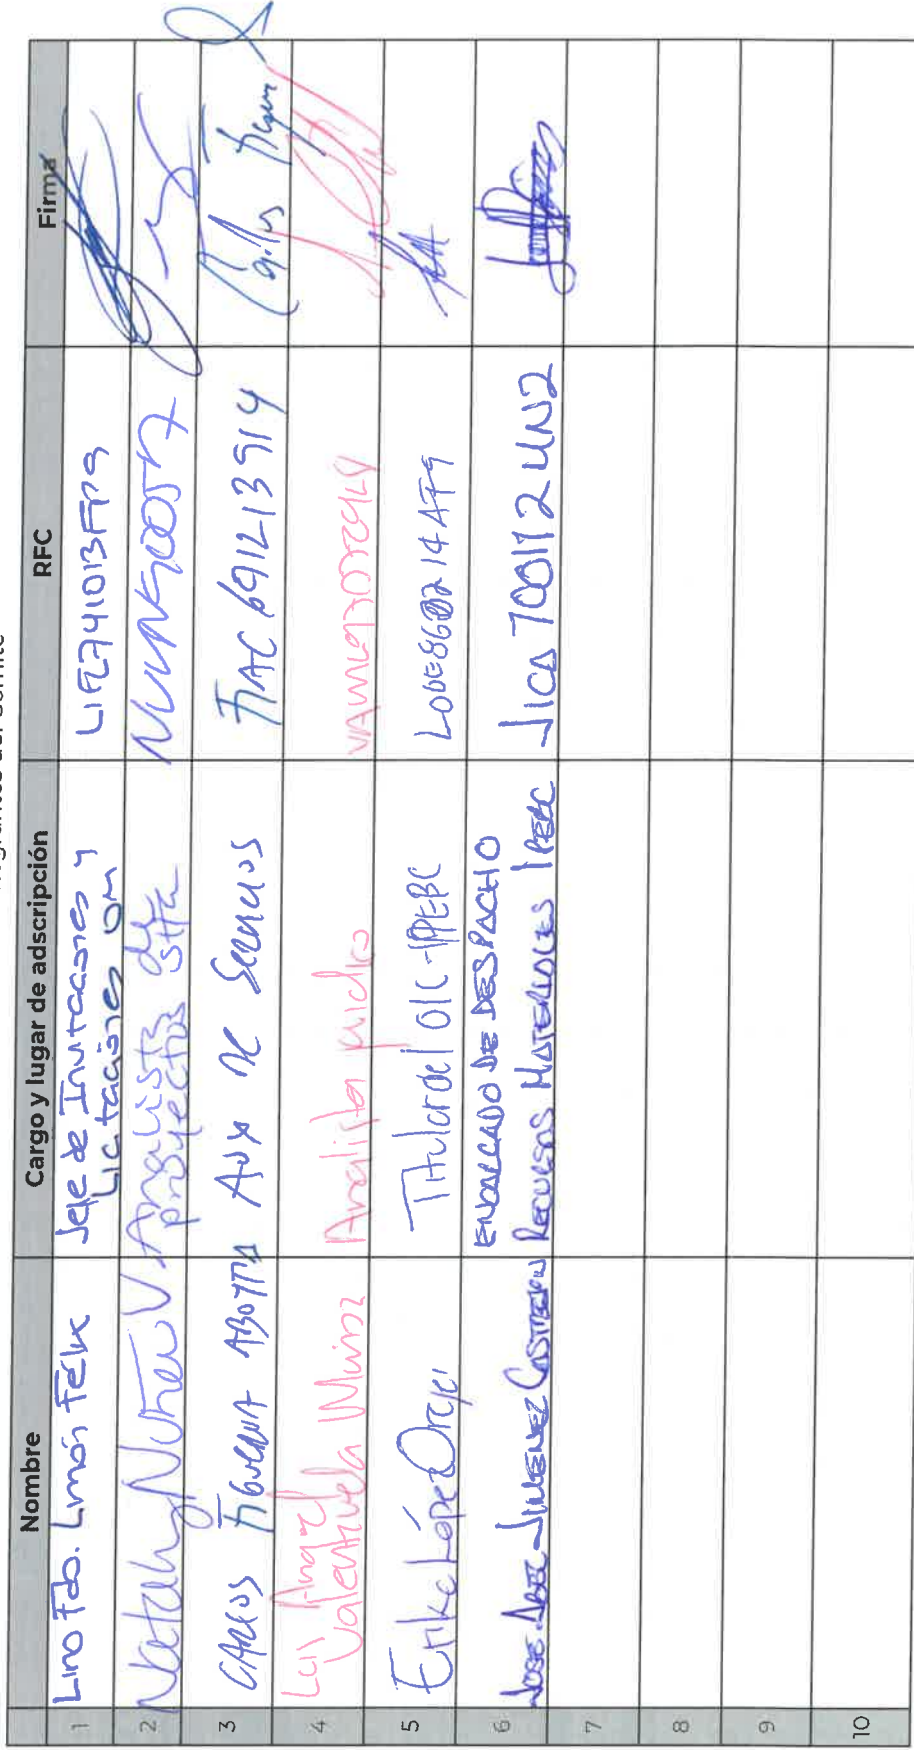 Nombre Cargo y lugar de adscripción RFC Firma
1 Lino Fdo. Limón Félix Jefe de Invitaciones y
Licitaciones OM
2 Nataly Núñez V Analista de
proyectos
3 CARLOS FIGUEROA Aux de Servicios FIAC691213914
4 Luis Angel
Valenzuela Muñoz Analista jurídico
5 Erika López Titular del OIC-IPEBC LOOE860214AF9
6 JOSE ABEL JIMENEZ CASTREJON ENCARGADO DE DESPACHO
RECURSOS MATERIALES IPEBC JICA700112UN2
7
8
9
10